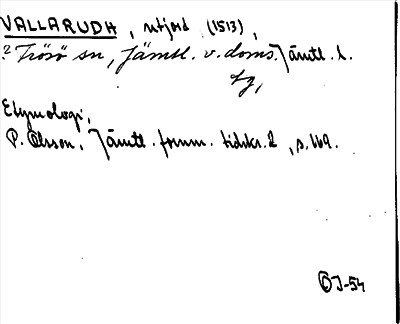 VALLARUDH, utjord (1513),
? Frösö sn, Jämtl. v. doms. Jämtl. l.
Etymologi,
P. Olsson, Jämtl. fornm. tidskr. 2, s. 169.
J-54